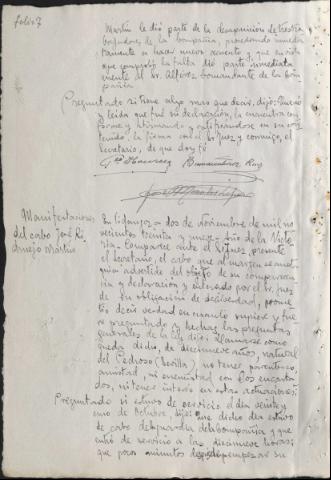 folio 7
Martín le dió parte de la desaparición de tres tra
bajadores de la Compañía, procediendo inmedia
tamente a hacer nuevo recuento y que en vista
que comprobó la falta dió parte inmediata
mente al Sr. Alférez Comandante de la Com
pañía
Preguntado si tiene algo mas que decir, dijo: Que no
y leida que fué su declaración, la encuentra con
forme y afirmando y ratificandose en su con
tenido, la firma con el Sr. Juez y conmigo, el
Secretario, de que doy fé
Manifestaciones
del cabo José
Martín
En a dos de Noviembre de mil no
vecientos treinta y nueve Año de la Victo
ria. Comparece ante el Sr. Juez, presente
el Secretario, el cabo que al margen se anota
quien advertido del objeto de su comparecen
cia y declaración y enterado por el Sr. Juez
de su obligación de decir verdad, prome
tió decir verdad en cuanto supiere y fue
re preguntado y hechas las preguntas
generales de la ley dijo: llamarse como
queda dicho, de diecinueve años, natural
del Pedroso (Sevilla) no tener parentesco,
amistad, ni enemistad con los encarta
dos, ni tener interés en estas actuaciones;
Preguntado si estuvo de servicio el día veinte y
uno de Octubre, dijo: que dicho día estuvo
de cabo de guardia de la Compañía y que
entró de servicio a las diecinueve horas;
que pocos minutos después de su